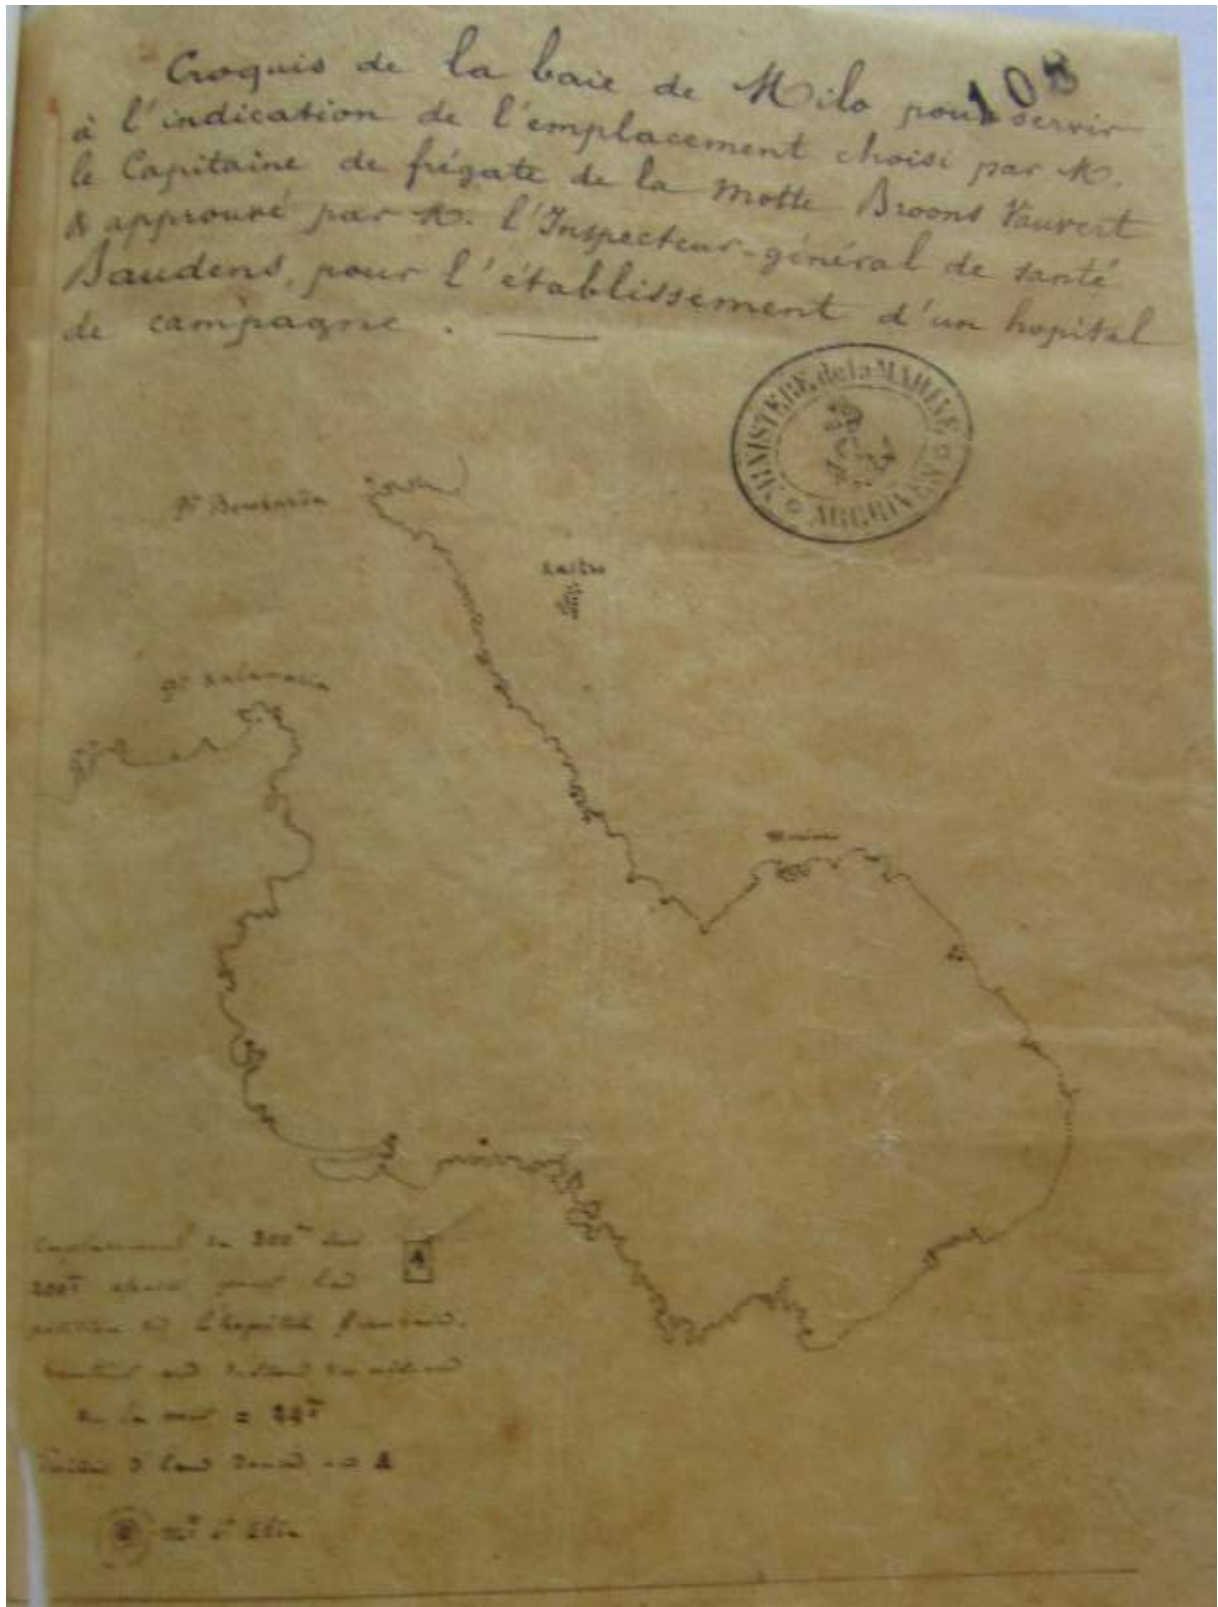 108
Croquis de la baie de Milo pour servir
à l'indication de l'emplacement choisi par M.
le Capitaine de frégate de la Motte Broons Vauvert
& approuvé par M. l'Inspecteur-général de santé
Baudens, pour l'établissement d'un hopital
de campagne.
MINISTERE de la MARINE
ARCHIVES
Pte Bombarda
Kastro
A
Emplacement de 300m sur
200m choisi pour la
position de l'hopital francais.
de la mer = 22m
Puits d'eau douce en A
Mt St Elie